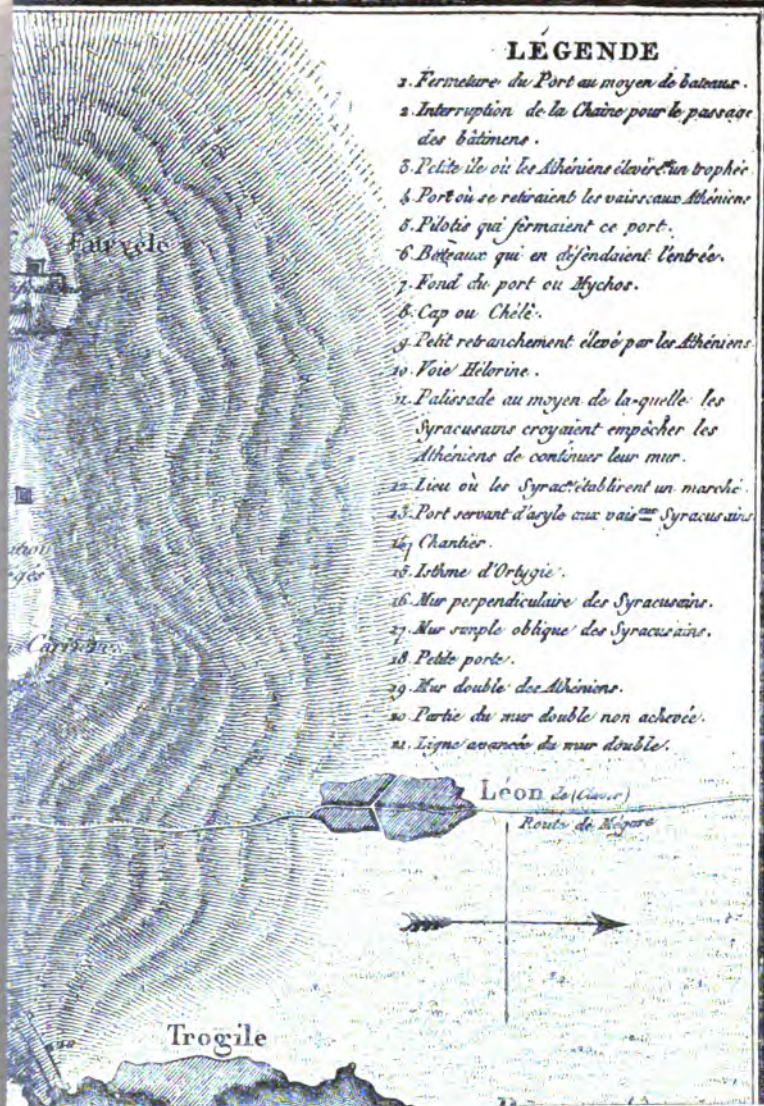 LÉGENDE
1. Fermeture du Port au moyen de bateaux.
2. Interruption de la Chaîne pour le passage
des bâtimens.
3. Petite île où les Athéniens élevèr.ent un trophée
4. Port où se retiraient les vaisseaux Athéniens
5. Pilotis qui fermaient ce port.
6. Bateaux qui en défendaient l'entrée.
7. Fond du port ou Mychos.
8. Cap ou Chêlê.
9. Petit retranchement élevé par les Athéniens
10. Voie Hélorine.
11. Palissade au moyen de la-quelle les
Syracusains croyaient empêcher les
Athéniens de continuer leur mur.
12. Lieu où les Syrac.ns établirent un marché.
13. Port servant d'asyle aux vais.eaux Syracusains
14. Chantier.
15. Isthme d'Ortygie.
16. Mur perpendiculaire des Syracusains.
17. Mur simple oblique des Syracusains.
18. Petite porte.
19. Mur double des Athéniens.
20. Partie du mur double non achevée.
21. Ligne avancée du mur double.
Léon
Route de Mégare
20
Trogile